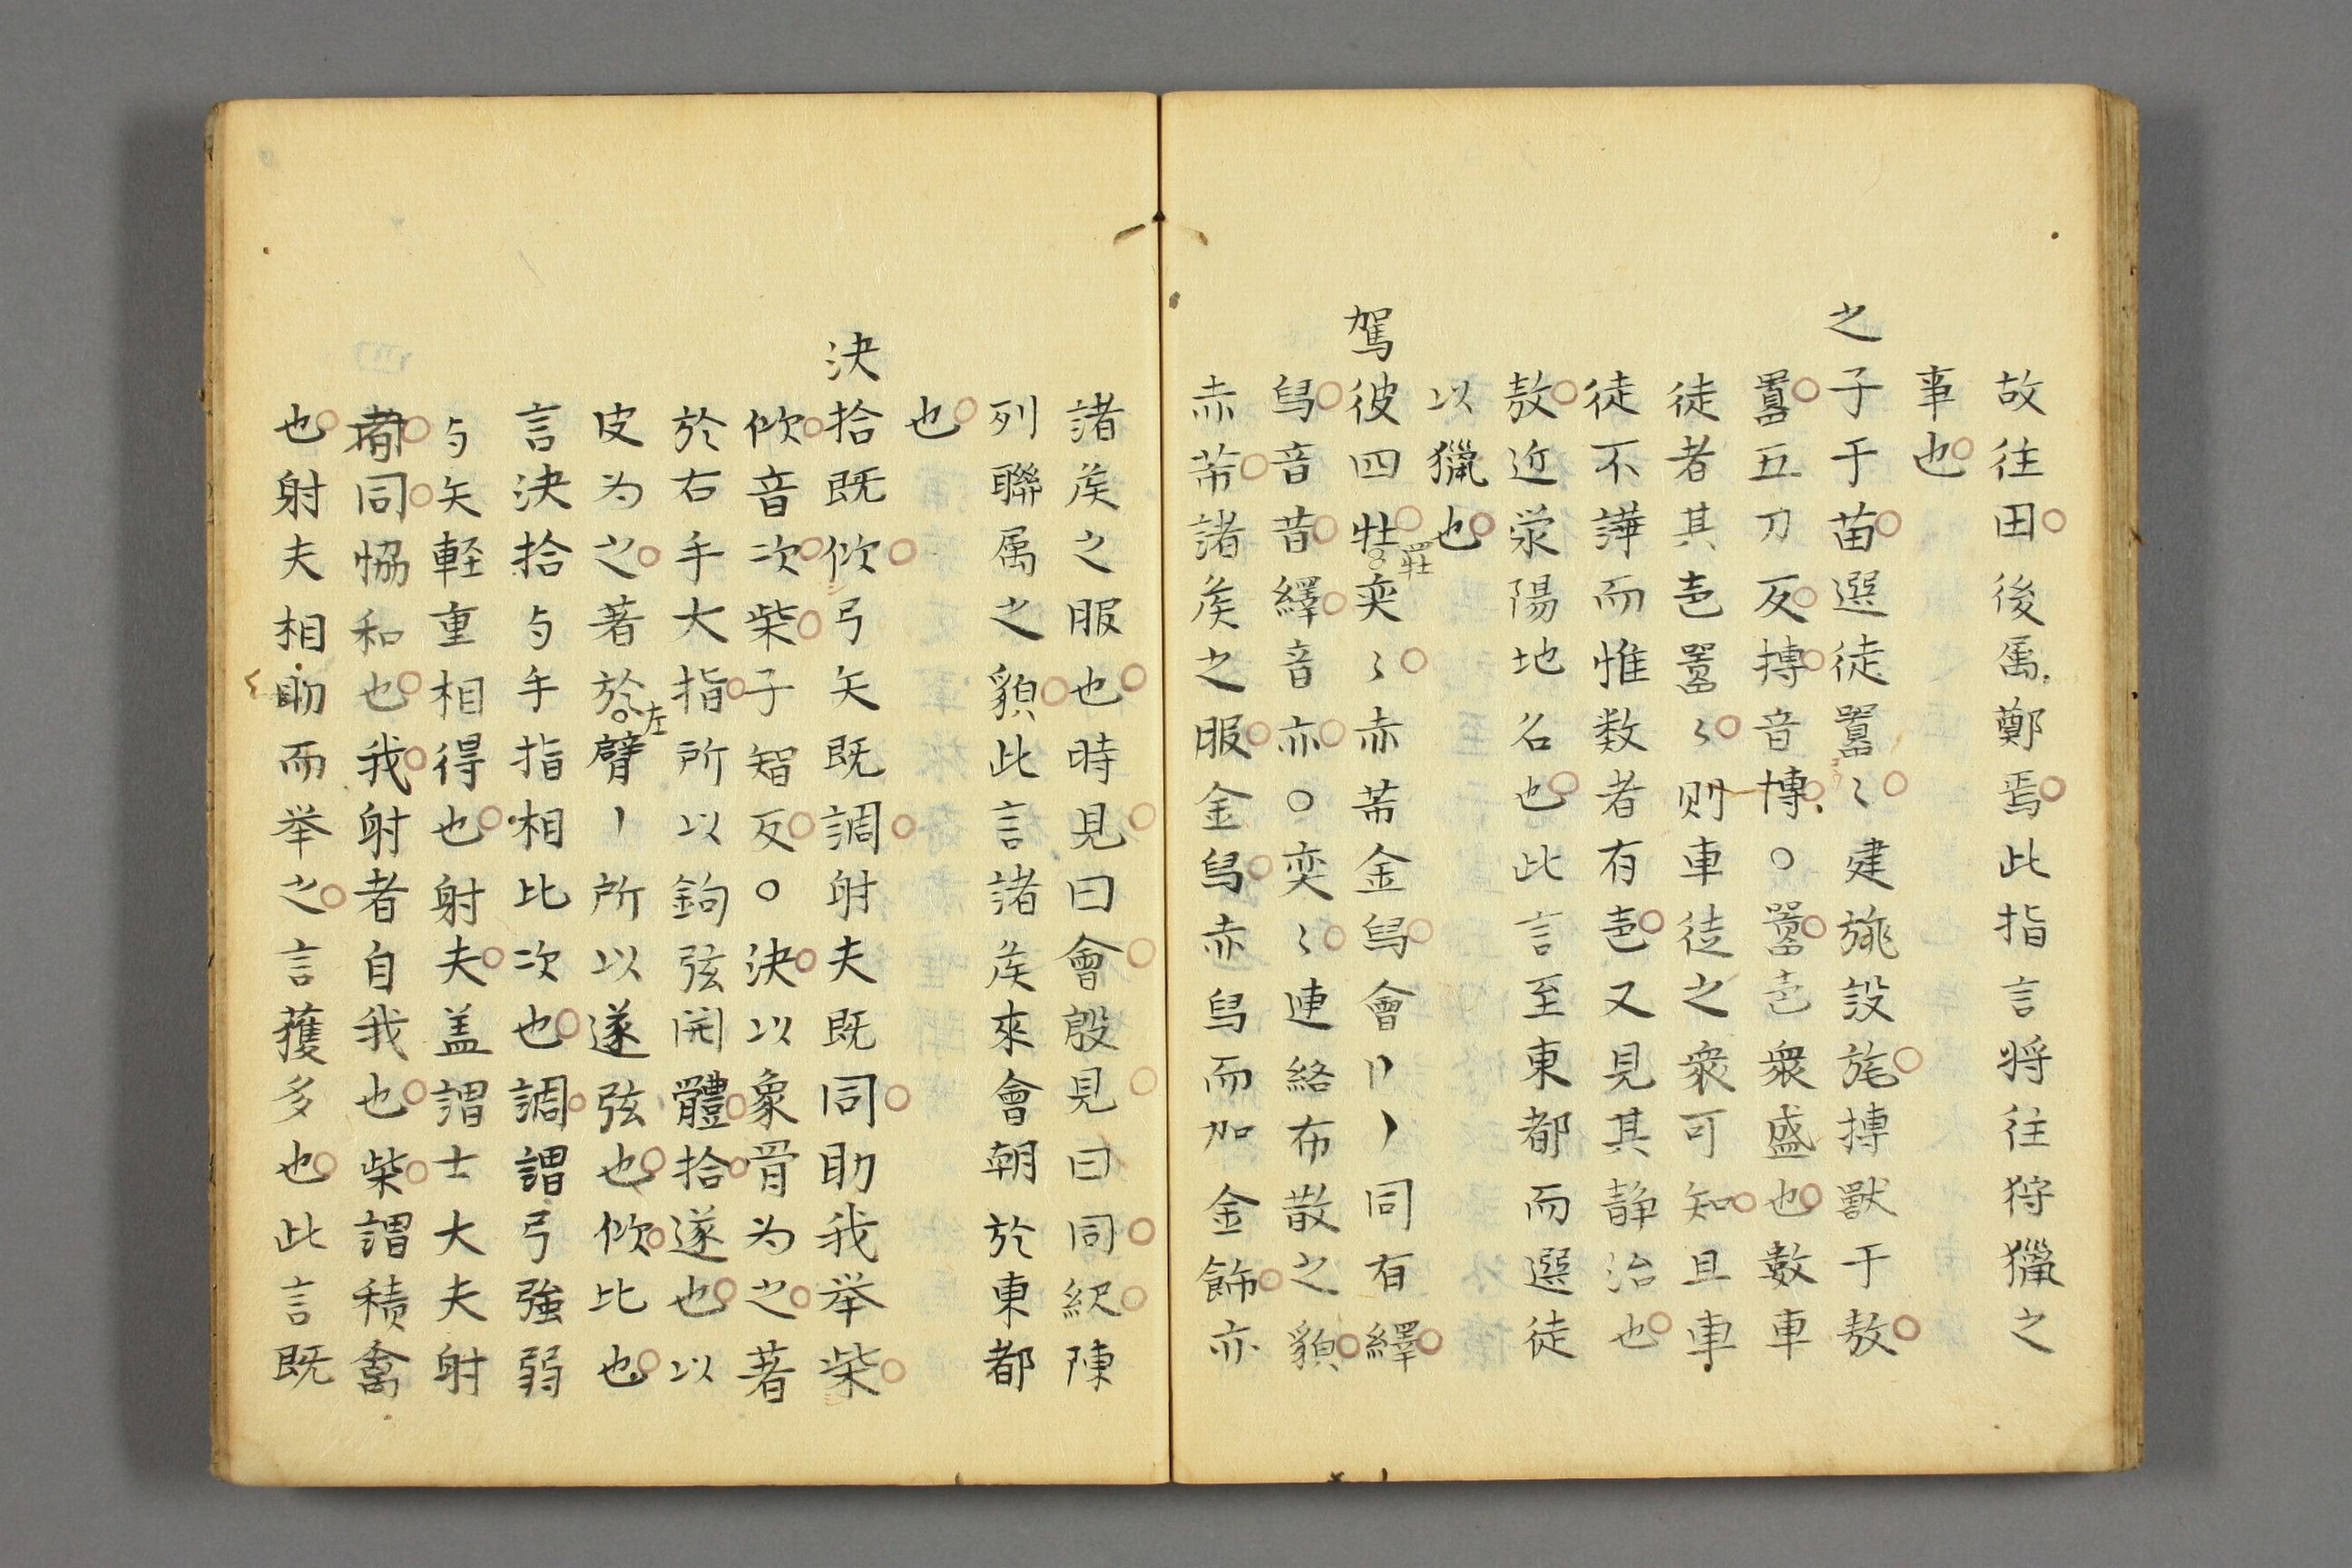 故往田後属鄭焉此指言将往狩獵之
事也
之子于苗選徒嚻〻建旐設旄搏獸于敖
嚻五刀反搏音博○嚻声衆盛也數車
徒者其声嚻〻则車徒之衆可知且車
徒不譁而惟数者有声又見其静治也
敖近滎陽地名也此言至東都而選徒
以獵也
駕彼四牡奕〻赤芾金舄會同有繹
舄音昔繹音亦○奕〻連絡布散之貌
赤芾諸矦之服金舄赤舄而加金飾亦
諸矦之服也時見曰會殷見曰同繹陳
列聯属之貌此言諸矦來會朝於東都
也
決拾既佽弓矢既調射夫既同助我举柴
佽音次柴子智反○決以象骨为之著
於右手大指所以鉤弦開體拾遂也以
皮为之著於左臂所以遂弦也佽比也
言決拾与手指相比次也調謂弓強弱
与矢軽重相得也射夫盖謂士大夫射
者同恊和也我射者自我也柴謂積禽
也射夫相助而举之言獲多也此言既